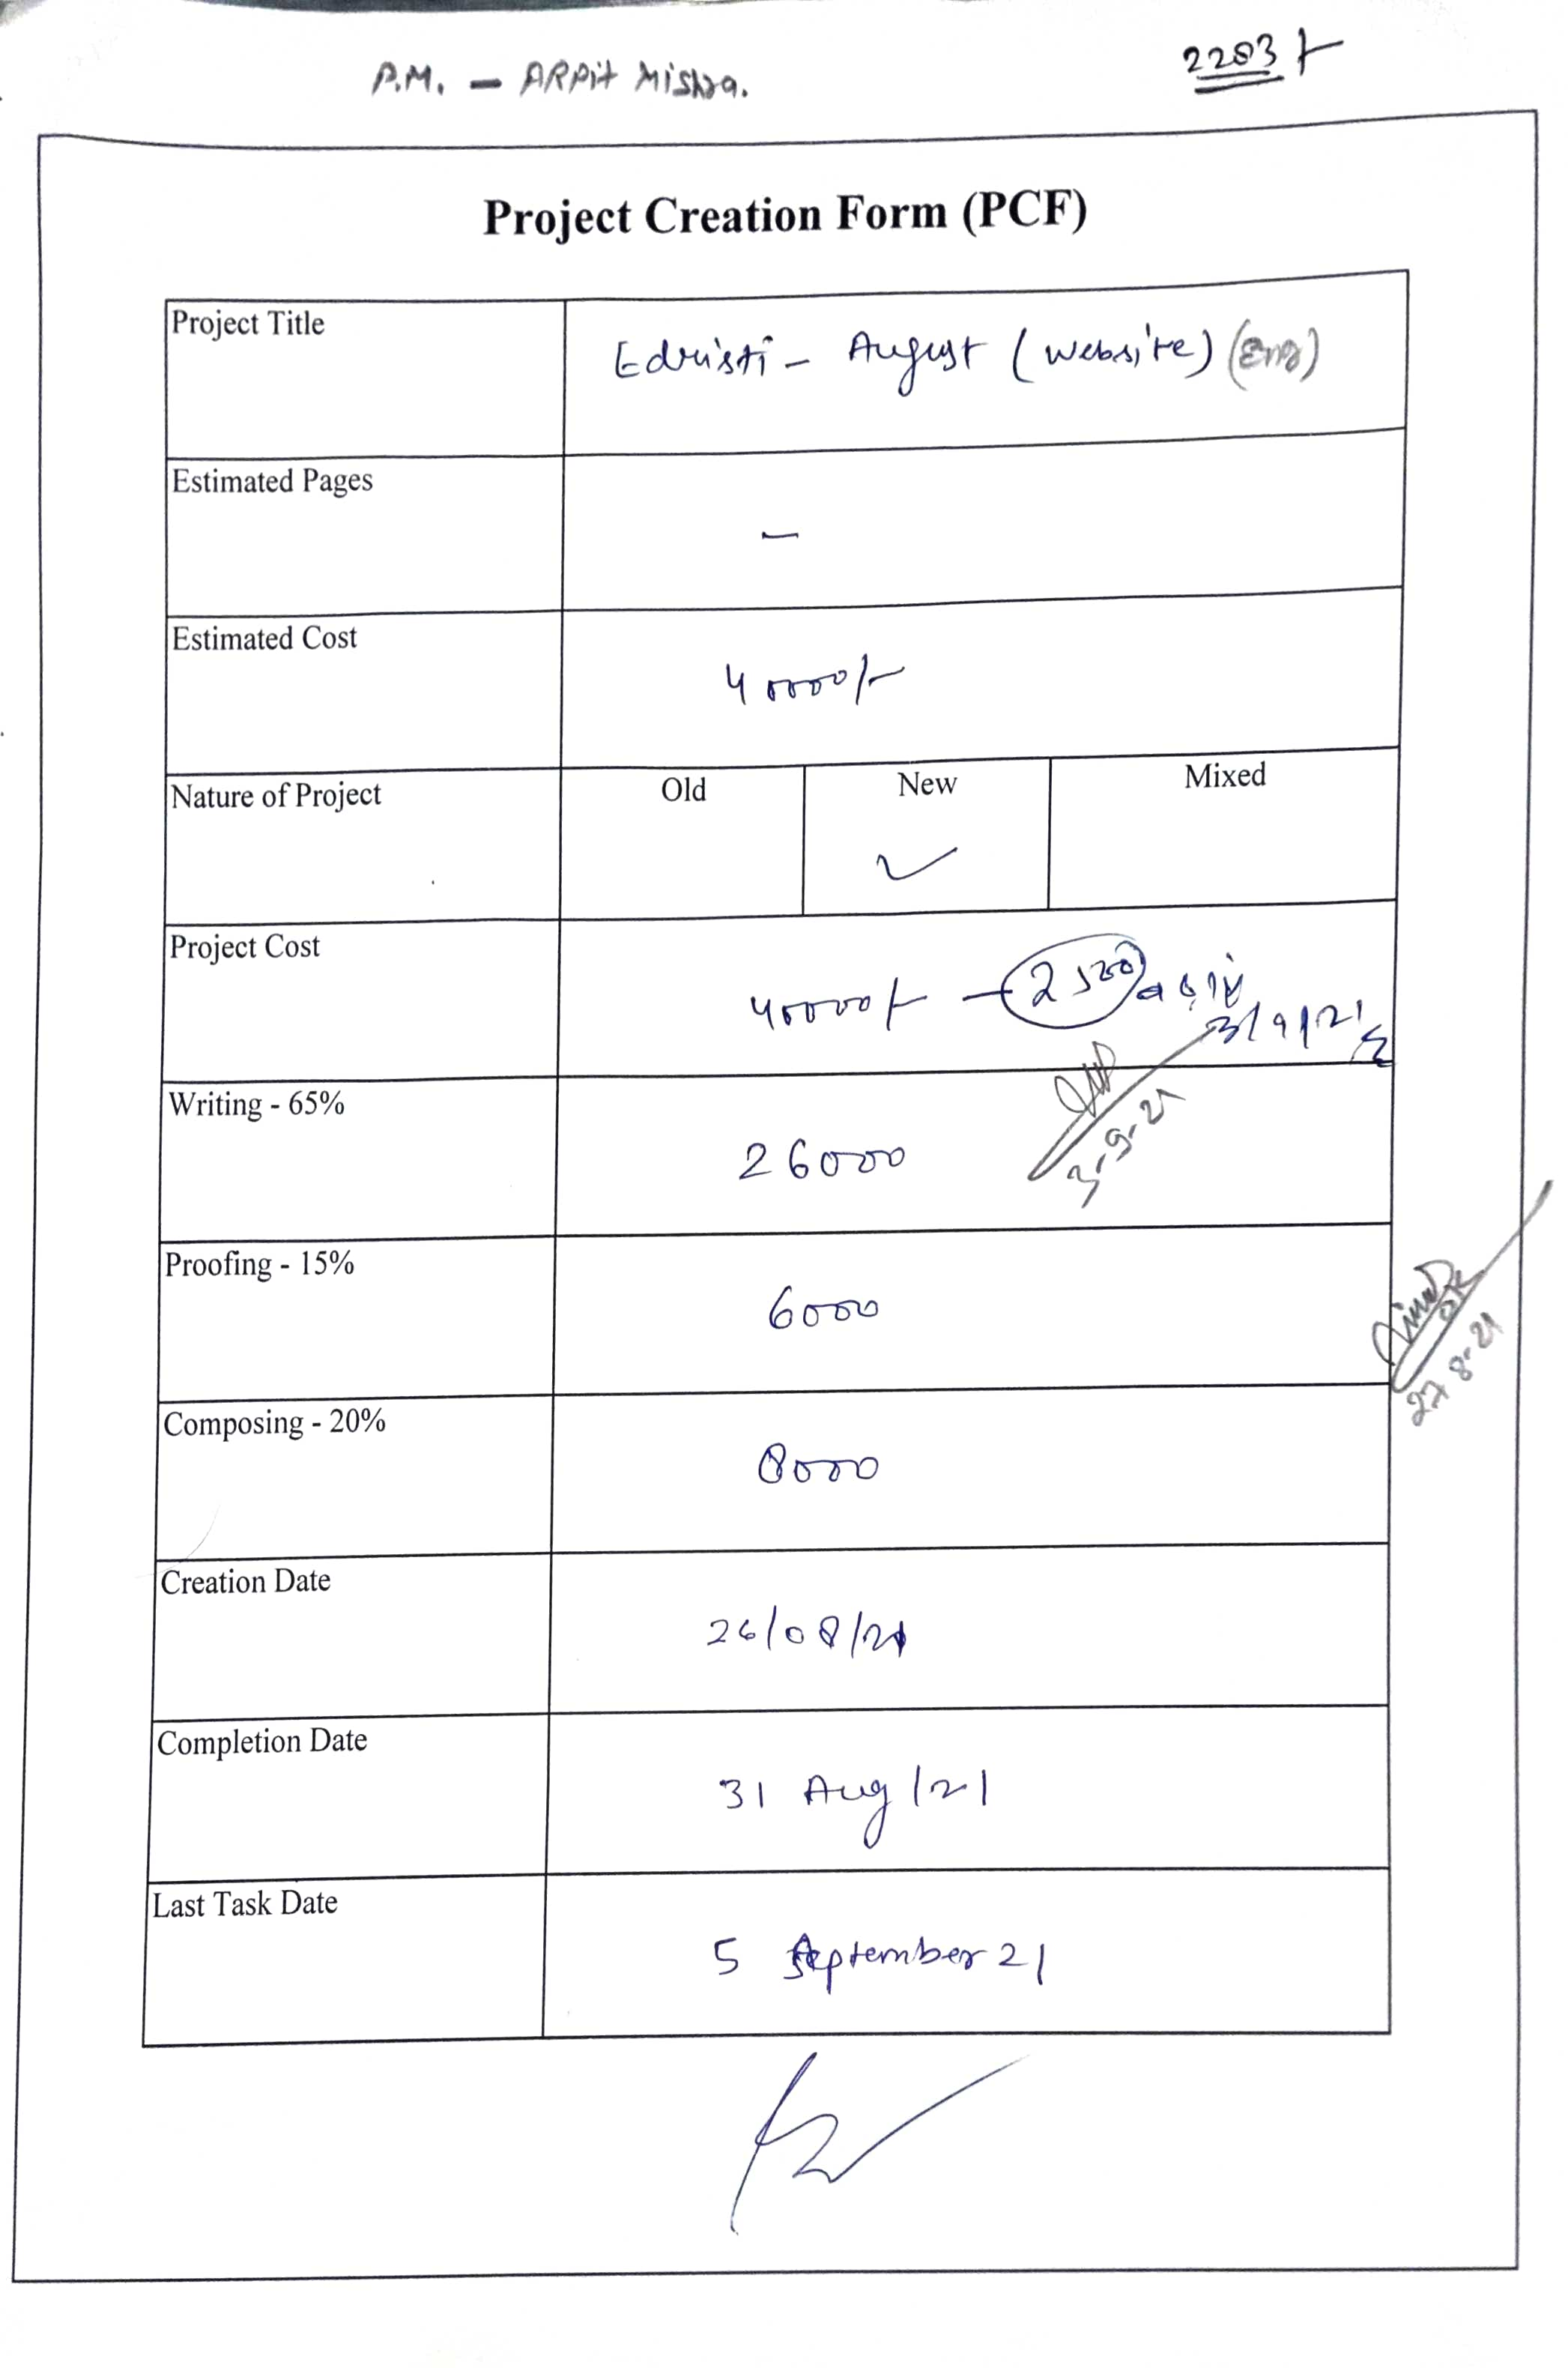 P.M. - ARPit Mishra.
2283
Project Creation Form (PCF)
Project Title
Edristi - August (Website) (Eng)
Estimated Pages
-
Estimated Cost
40000/-
Nature of Project
Old
New
Mixed
✓
Project Cost
40000/- - 2500
3/9/21
Writing - 65%
26000
3-9-21
Proofing - 15%
6000
27-8-21
Composing - 20%
8000
Creation Date
26/08/21
Completion Date
31 Aug/21
Last Task Date
5 September 21